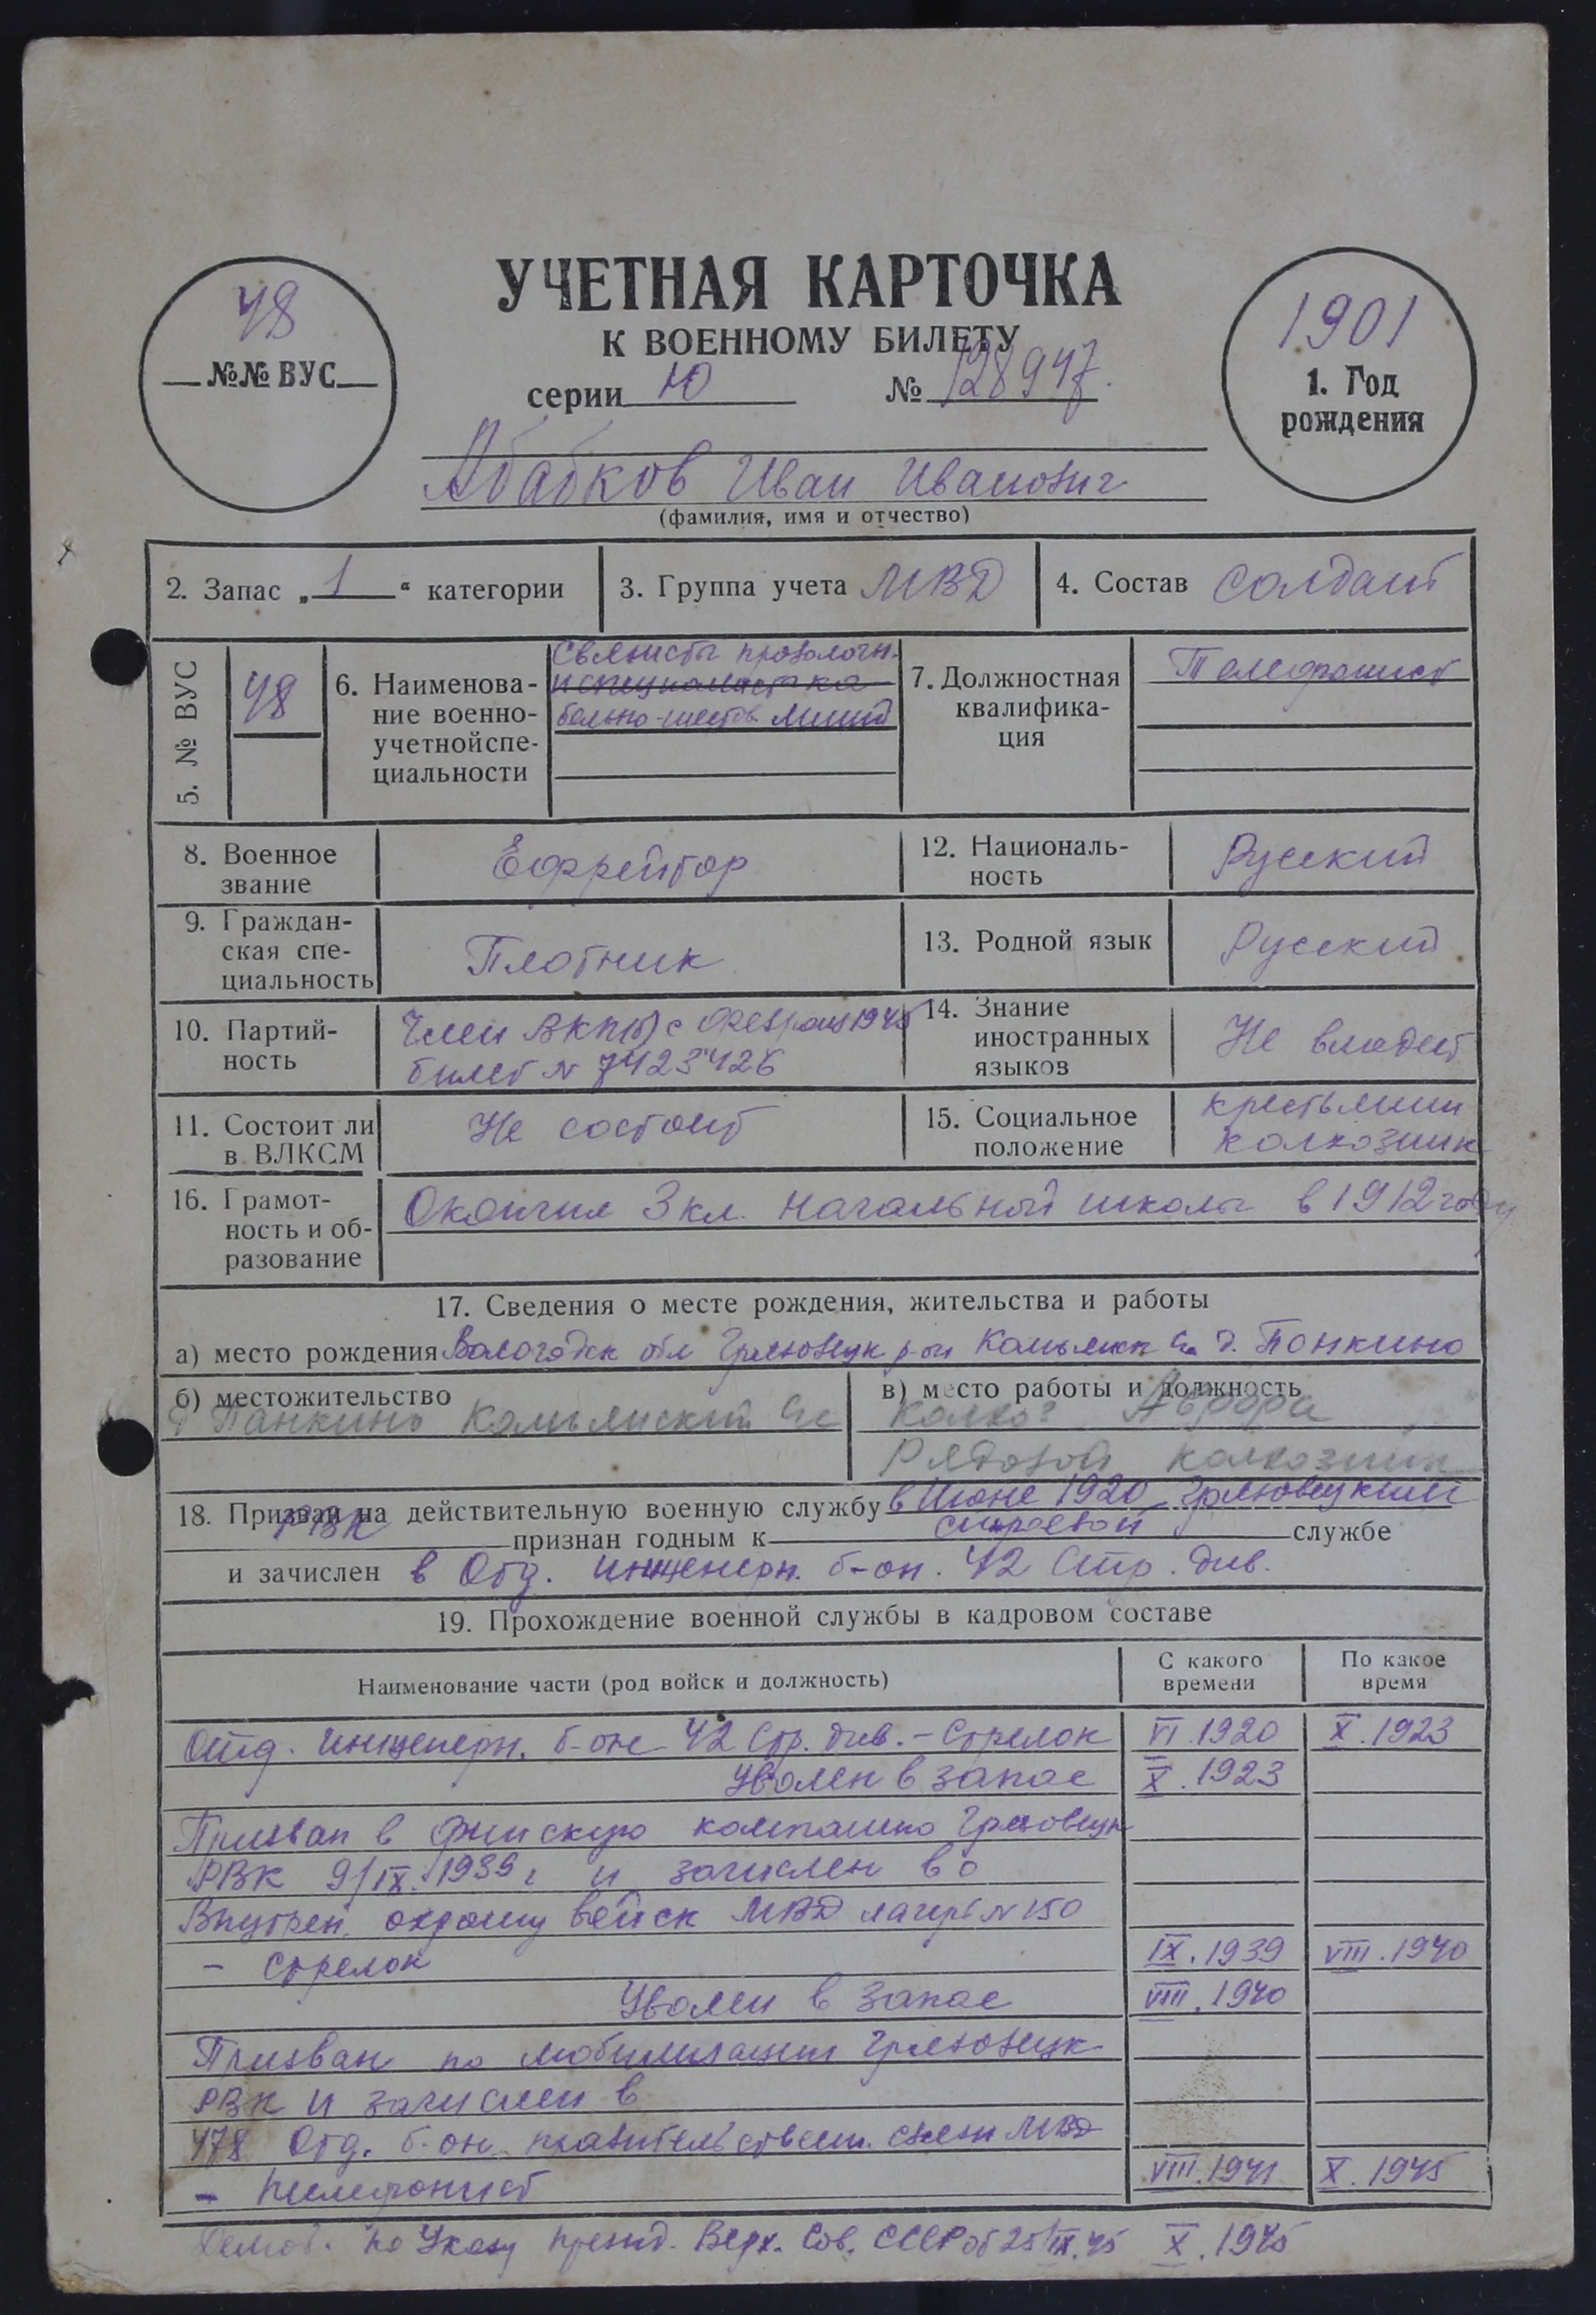 УЧЕТНАЯ КАРТОЧКА
К ВОЕННОМУ БИЛЕТУ
серии Ю № 128947.
48
№№ ВУС
1901
1. Год
рождения
Абабков Иван Иванович
(фамилия, имя и отчество)
2. Запас „1“ категории
3. Группа учета МВД
4. Состав солдат
5. № ВУС
48
6. Наименова-
ние военно-
учетной спе-
циальности
Связисты проволочн.
7. Должностная
квалифика-
ция
Телефонист
8. Военное
звание
Ефрейтор
12. Националь-
ность
Русский
9. Граждан-
ская спе-
циальность
Плотник
13. Родной язык
Русский
10. Партий-
ность
Член ВКП(б) с 1945
билет № 7423426
14. Знание
иностранных
языков
Не владеет
11. Состоит ли
в ВЛКСМ
Не состоит
15. Социальное
положение
крестьянин
колхозник
16. Грамот-
ность и об-
разование
Окончил 3 кл. начальной школы в 1912 году
17. Сведения о месте рождения, жительства и работы
а) место рождения Вологодск обл Грязовецк р-он д. Понкино
б) местожительство
д Панкино
в) место работы и должность
Колхоз Аврора
Рядовой колхозник
18. Призван на действительную военную службу в Июне 1920 Грязовецким
РВК признан годным к строевой службе
и зачислен в Отд. инженерн. б-он. 42 Стр. див.
19. Прохождение военной службы в кадровом составе
Наименование части (род войск и должность)
С какого
времени
По какое
время
Отд. Инженерн. б-он 42 Стр. див. – Стрелок VI 1920 X.1923
Уволен в запас X.1923
Призван в финскую компанию Грязовецк
РВК 9/IX.1939 г и зачислен во
Внутрен. охрану войск МВД лагерь № 150
– стрелок IX.1939 VIII.1940
Уволен в запас VIII.1940
Призван по мобилизации Грязовецк
РВК и зачислен в
478 Отд. б-он правительствен. связи МВД
– телефонист VIII.1941 X.1945
Демоб. по Указу Презид. Верх. Сов. СССР от 25/IX.45 X.1945